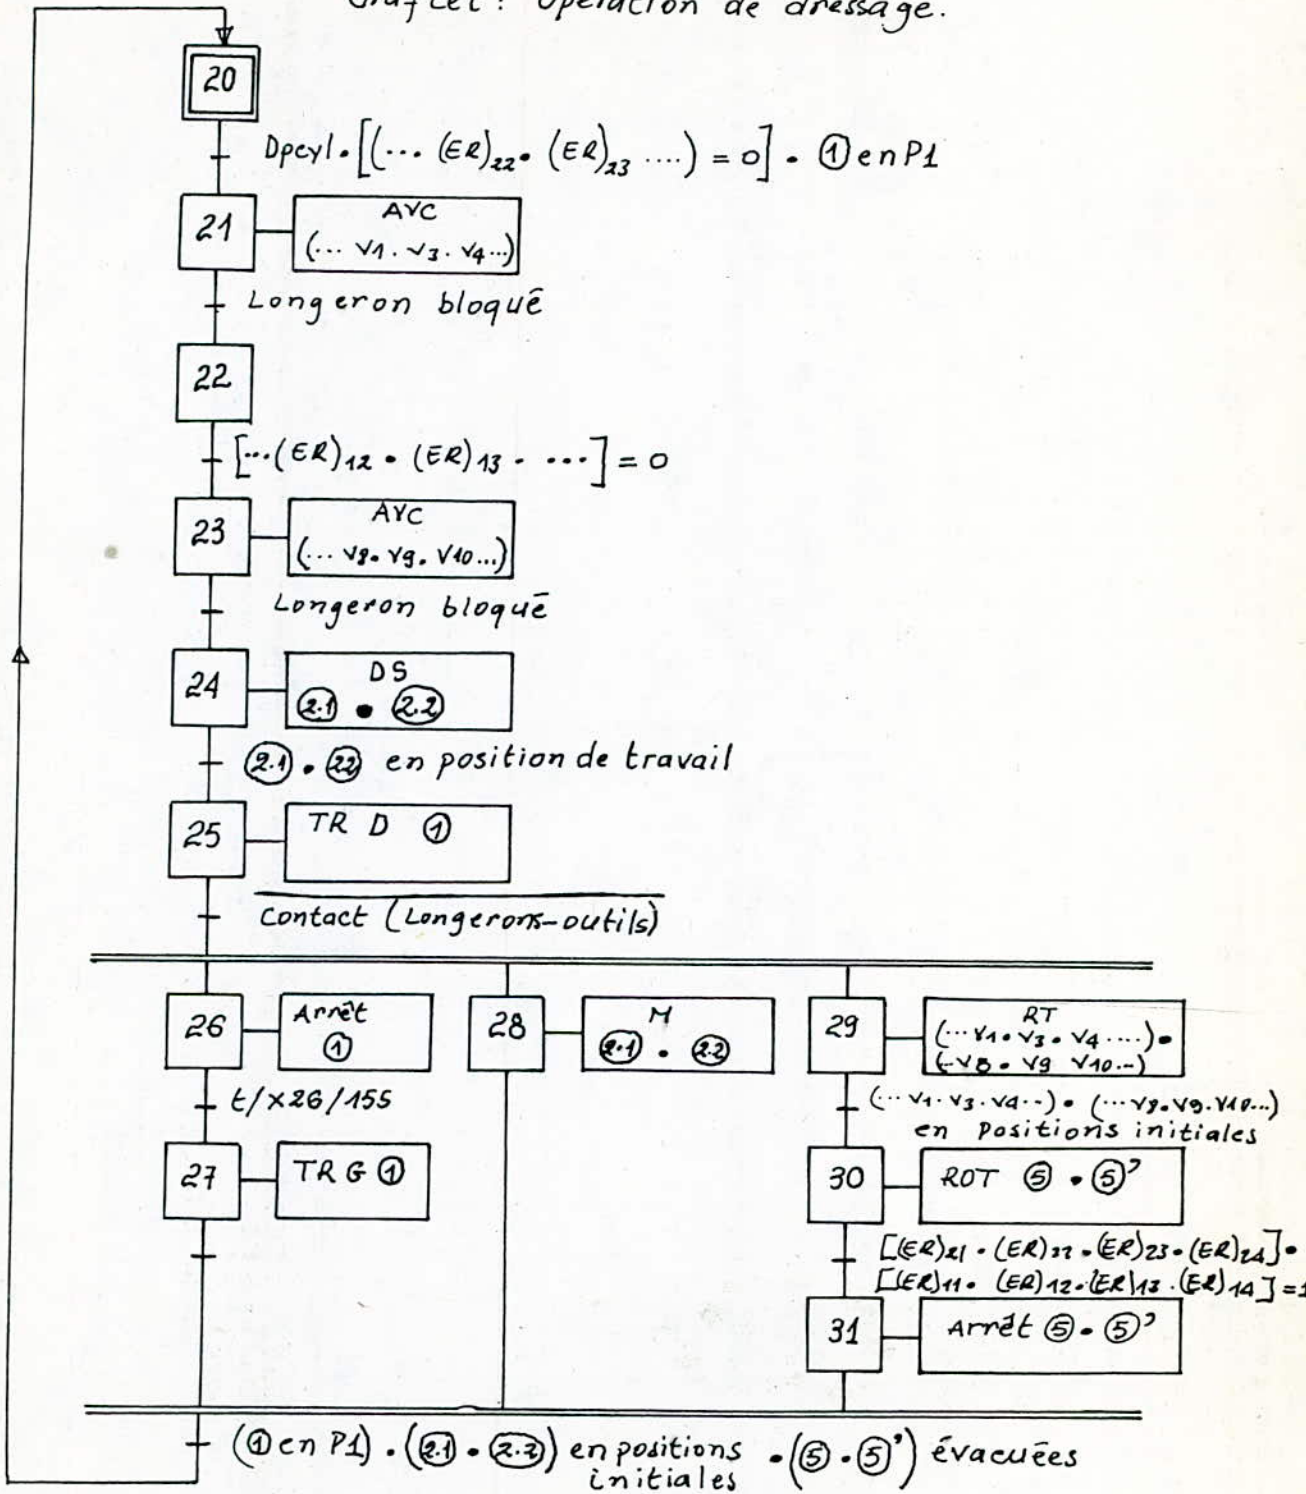 Grafcet : Opération de dressage.
20
Dpcyl . [(... (ER)22 . (ER)23 ....) = 0] . ① en P1
21
AVC
(... V1 . V3 . V4 ...)
Longeron bloqué
22
[...(ER)12 . (ER)13 . ....] = 0
23
AVC
(... V8 . V9 . V10 ...)
Longeron bloqué
24
DS
(2.1) . (2.2)
(2.1) . (22) en position de travail
25
TR D ①
Contact (Longerons-outils)
26
Arrêt
①
28
M
(2.1) . (2.2)
29
RT
(... V1 . V3 . V4 ....) .
(..V8 . V9 V10 ..)
t/X26/15S
(... V1 . V3 . V4 ..) . (... V8 . V9 . V10 ...)
en Positions initiales
27
TR G ①
30
ROT ⑤ . ⑤'
[(ER)21 . (ER)22 . (ER)23 . (ER)24] .
[(ER)11 . (ER)12 . (ER)13 . (ER)14] = 1
31
Arrêt ⑤ . ⑤'
(① en P1) . ((2.1) . (2.2)) en positions . (⑤ . ⑤') évacuées
initiales